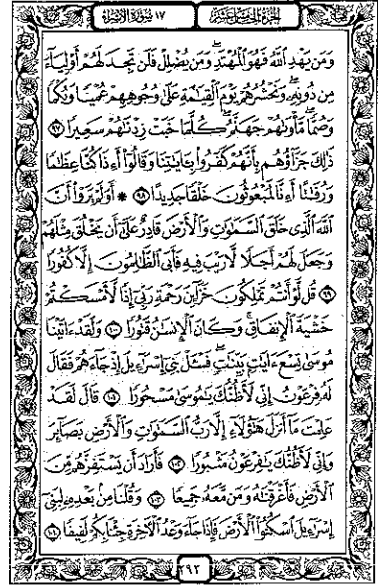 الجزء الخامس عشر
١٧ سورة الإسراء
وَمَن يَهْدِ ٱللَّهُ فَهُوَ ٱلْمُهْتَدِ وَمَن يُضْلِلْ فَلَن تَجِدَ لَهُمْ أَوْلِيَآءَ
مِن دُونِهِۦ وَنَحْشُرُهُمْ يَوْمَ ٱلْقِيَٰمَةِ عَلَىٰ وُجُوهِهِمْ عُمْيًا وَبُكْمًا
وَصُمًّا مَّأْوَىٰهُمْ جَهَنَّمُ كُلَّمَا خَبَتْ زِدْنَٰهُمْ سَعِيرًا ٩٧
ذَٰلِكَ جَزَآؤُهُم بِأَنَّهُمْ كَفَرُوا۟ بِـَٔايَٰتِنَا وَقَالُوٓا۟ أَءِذَا كُنَّا عِظَٰمًا
وَرُفَٰتًا أَءِنَّا لَمَبْعُوثُونَ خَلْقًا جَدِيدًا ٩٨ * أَوَلَمْ يَرَوْا۟ أَنَّ
ٱللَّهَ ٱلَّذِى خَلَقَ ٱلسَّمَٰوَٰتِ وَٱلْأَرْضَ قَادِرٌ عَلَىٰٓ أَن يَخْلُقَ مِثْلَهُمْ
وَجَعَلَ لَهُمْ أَجَلًا لَّا رَيْبَ فِيهِ فَأَبَى ٱلظَّٰلِمُونَ إِلَّا كُفُورًا
٩٩ قُل لَّوْ أَنتُمْ تَمْلِكُونَ خَزَآئِنَ رَحْمَةِ رَبِّىٓ إِذًا لَّأَمْسَكْتُمْ
خَشْيَةَ ٱلْإِنفَاقِ وَكَانَ ٱلْإِنسَٰنُ قَتُورًا ١٠٠ وَلَقَدْ ءَاتَيْنَا
مُوسَىٰ تِسْعَ ءَايَٰتٍۭ بَيِّنَٰتٍ فَسْـَٔلْ بَنِىٓ إِسْرَٰٓءِيلَ إِذْ جَآءَهُمْ فَقَالَ
لَهُۥ فِرْعَوْنُ إِنِّى لَأَظُنُّكَ يَٰمُوسَىٰ مَسْحُورًا ١٠١ قَالَ لَقَدْ
عَلِمْتَ مَآ أَنزَلَ هَٰٓؤُلَآءِ إِلَّا رَبُّ ٱلسَّمَٰوَٰتِ وَٱلْأَرْضِ بَصَآئِرَ
وَإِنِّى لَأَظُنُّكَ يَٰفِرْعَوْنُ مَثْبُورًا ١٠٢ فَأَرَادَ أَن يَسْتَفِزَّهُم مِّنَ
ٱلْأَرْضِ فَأَغْرَقْنَٰهُ وَمَن مَّعَهُۥ جَمِيعًا ١٠٣ وَقُلْنَا مِنۢ بَعْدِهِۦ لِبَنِىٓ
إِسْرَٰٓءِيلَ ٱسْكُنُوا۟ ٱلْأَرْضَ فَإِذَا جَآءَ وَعْدُ ٱلْءَاخِرَةِ جِئْنَا بِكُمْ لَفِيفًا ١٠٤
٢٩٢